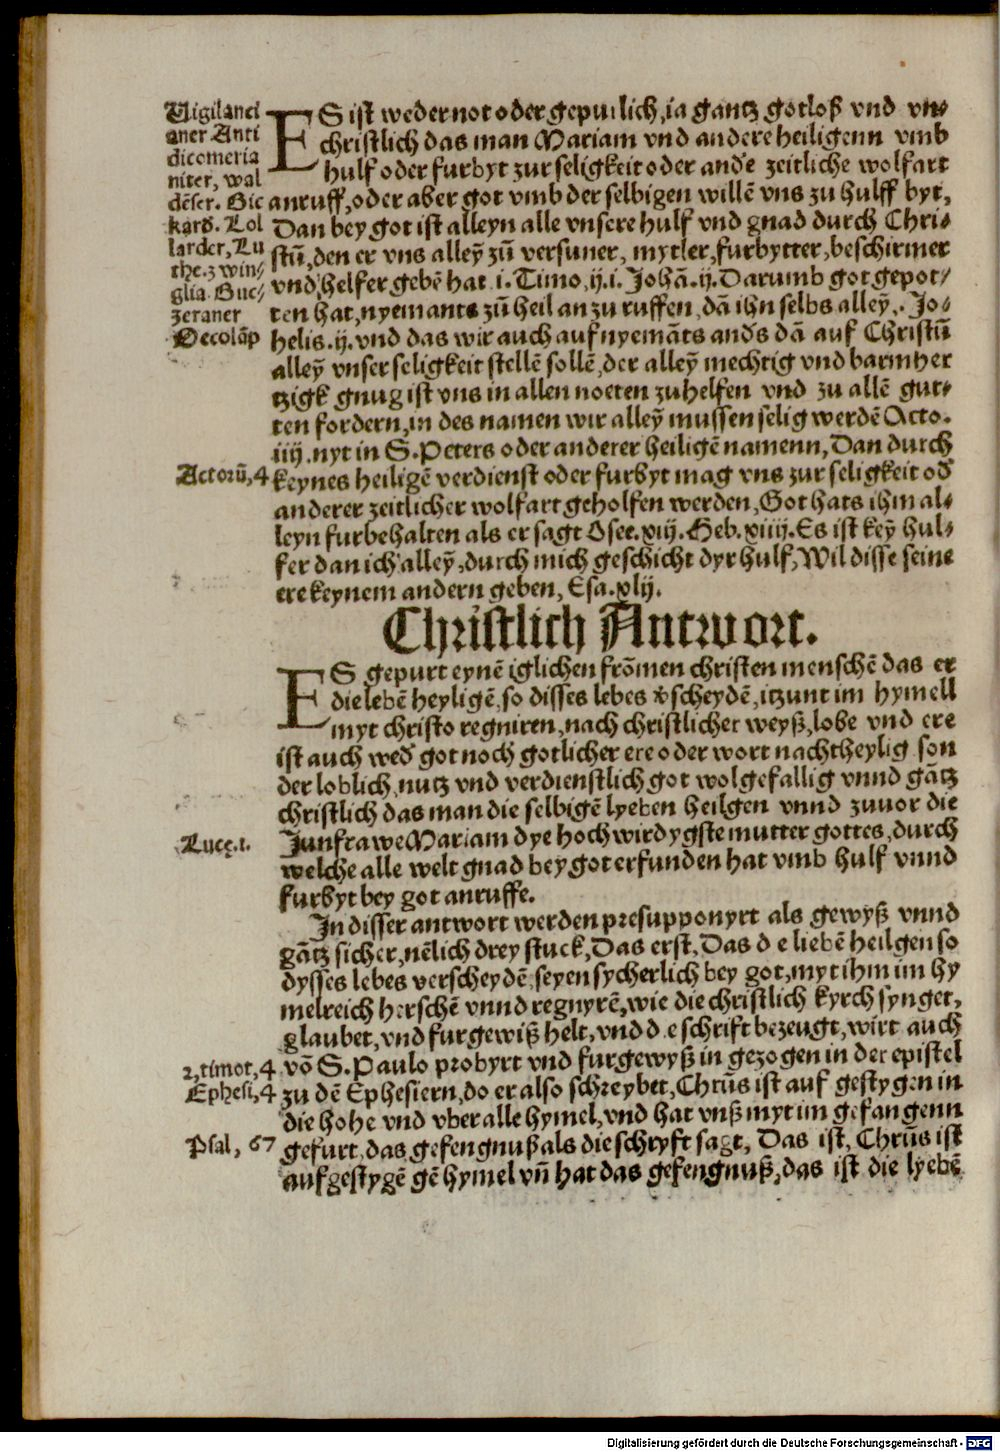 Vigilanci
aner Anti
dicomeria
niter, wal
dēser. Bic
kard. Lol
larder, Lu
the. zwin⸗
glia. Buc⸗
zeraner
Oecolāp
ES ist weder not oder gepurlich, ia gantz gotloß vnd vn⸗
christlich das man Mariam vnd andere heiligenn vmb
hulf oder furbyt zur seligkeit oder and'e zeitliche wolfart
anruff, oder aber got vmb der selbigen willē vns zu hulff byt,
Dan bey got ist alleyn alle vnsere hulf vnd gnad durch Chri⸗
stū, den er vns alleȳ zū versuner, mytler, furbytter, beschirmer
vnd helfer gebē hat. i. Timo. ij. i. Johā. ij. Darumb got gepot⸗
ten hat, nyemants zū heil an zu ruffen, dā ihn selbs alleȳ. Jo⸗
helis. ij. vnd das wir auch auf nyemāts and's dā auf Christū
alleȳ vnser seligkeit stellē sollē, der alleȳ mechtig vnd barmher
tzigk gnug ist vns in allen noeten zu helfen vnd zu allē gut⸗
ten fordern, in des namen wir alleȳ mussen selig werdē Acto.
iiij. nyt in S. Peters oder anderer heiligē namenn, Dan durch
Actorū, 4
keynes heiligē verdienst oder furbyt mag vns zur seligkeit od'
anderer zeitlicher wolfart geholfen werden, Got hats ihm al⸗
leyn furbehalten als er sagt Osee. xiij. Heb. xiiij. Es ist keȳ hul⸗
fer dan ich alleȳ, durch mich geschicht dyr hulf, Wil disse seine
ere keynem andern geben, Esa. xlij.
Christlich Antwort.
ES gepurt eynē iglichen frōmen christen menschē das er
die lebē heyligē, so disses lebes v'scheydē, itzunt im hymell
myt christo regniren, nach christlicher weyß, lobe vnd ere
ist auch wed' got noch gotlicher ere oder wort nachtheylig son
der loblich, nutz vnd verdienstlich got wolgefallig vnnd gātz
christlich das man die selbigē lyeben heilgen vnnd zuvor die
Luce. 1.
Junfrawe Mariam dye hoch wirdygste mutter gottes, durch
welche alle welt gnad bey got erfunden hat vmb hulf vnnd
furbyt bey got anruffe.
In disser antwort werden presupponyrt als gewyß vnnd
gātz sicher, nēlich drey stuck, Das erst, Das d e liebē heilgen so
dysses lebes verscheydē, seyen sycherlich bey got, myt ihm im hy
melreich herschē vnnd regnyrē, wie die christlich kyrch synget,
glaubet, vnd fur gewiß helt, vnd d e schrift bezeugt, wirt auch
2, timot, 4
vō S. Paulo probyrt vnd fur gewyß in gezogen in der epistel
Ephesi, 4
zu dē Ephesiern, do er also schreybet, Chrūs ist auf gestygen in
die hohe vnd vber alle hymel, vnd hat vnß myt im gefangenn
Psal, 67
gefurt, das gefengnuß als die schryft sagt, Das ist, Chrūs ist
aufgestygē gē hymel vn̄ hat das gefengnuß, das ist die lyebē
Digitalisierung gefördert durch die Deutsche Forschungsgemeinschaft - DFG